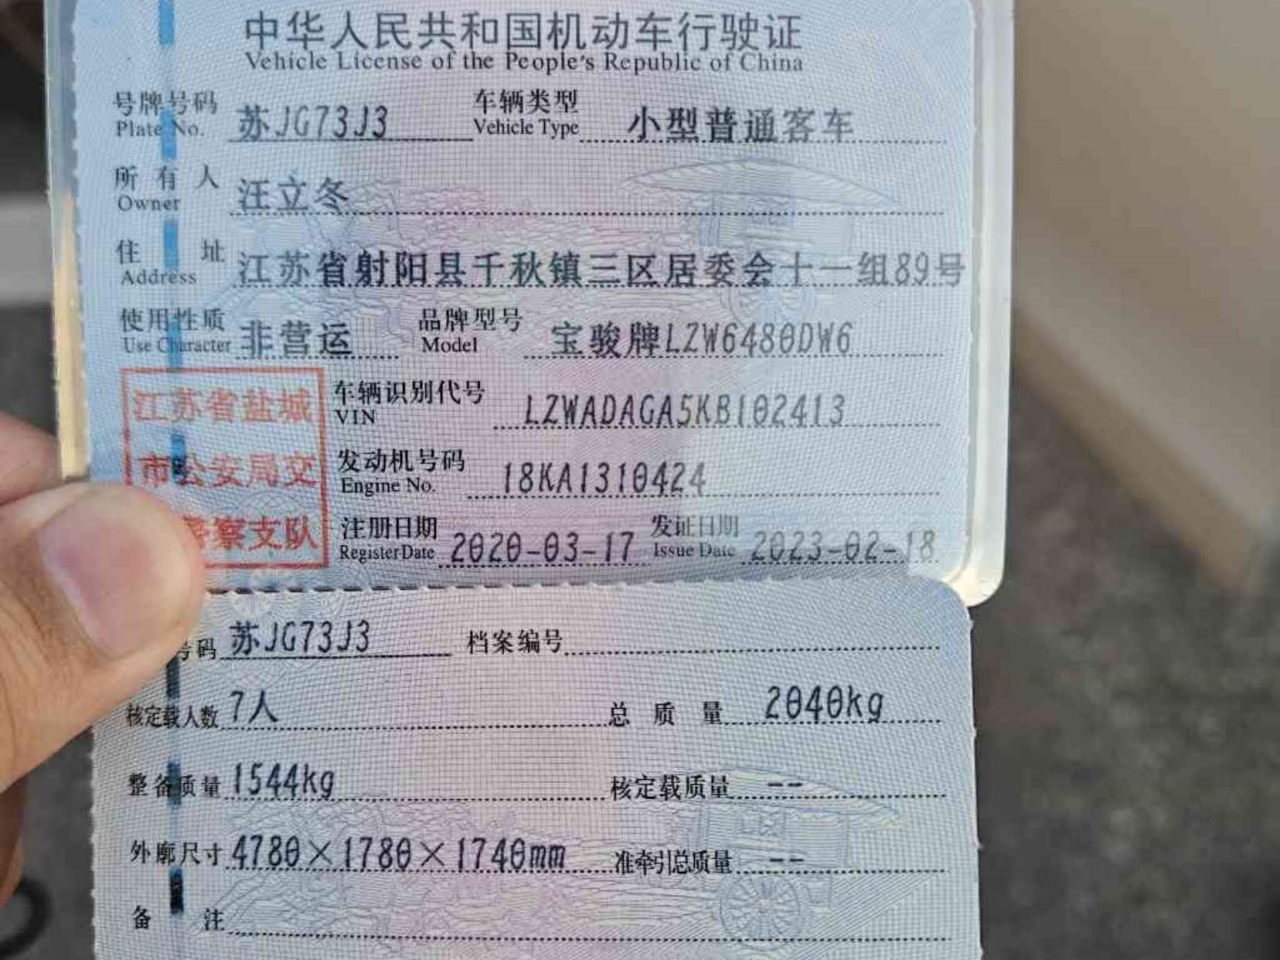 中华人民共和国机动车行驶证
Vehicle License of the People's Republic of China
号牌号码 苏JG73J3 车辆类型 小型普通客车
Plate No. Vehicle Type
所有人 汪立冬
Owner
住址 江苏省射阳县千秋镇三区居委会十一组89号
Address
使用性质 非营运 品牌型号 宝骏牌LZW6480DW6
Use Character Model
江苏省盐城
市公安局交
警察支队
车辆识别代号 LZWADAGA5KB102413
VIN
发动机号码 18KA1310424
Engine No.
注册日期 2020-03-17 发证日期 2023-02-18
Register Date Issue Date
号码 苏JG73J3 档案编号
核定载人数 7人 总质量 2040kg
整备质量 1544kg 核定载质量 --
外廓尺寸 4780×1780×1740mm 准牵引总质量 --
备注